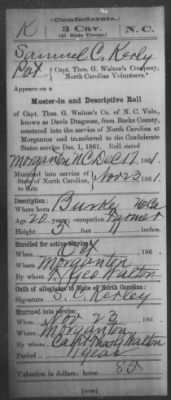 (Confederate.)
K 3 Cav. N. C.
(41 State Troops.)
Samuel C. Kerley
Pvt, Capt. Thos. G. Walton's Company,
North Carolina Volunteers.*
Appears on a
Muster-in and Descriptive Roll
of Capt. Thos. G. Walton's Co. of N. C. Vols.,
known as Davis Dragoons, from Burke County,
mustered into the service of North Carolina at
Morganton and transferred to the Confederate
States service Dec. 1, 1861. Roll dated
Morganton N.C. Dec 17, 1861.
Mustered into service of
State of North Carolina,
to date
Nov 23, 1861.
Description:
Where born Burke N. Ca
Age 20 years; occupation Farmer
Height 5 ft. 11 inches.
Enrolled for active service:
When Oct 186
Where Morganton
By whom Walton
Oath of allegiance to State of North Carolina:
Signature S. C. Kerley
Mustered into service:
When Nov 23 186
Where Morganton
By whom Capt Walton
Period 1 year
Valuation in dollars: horse 85